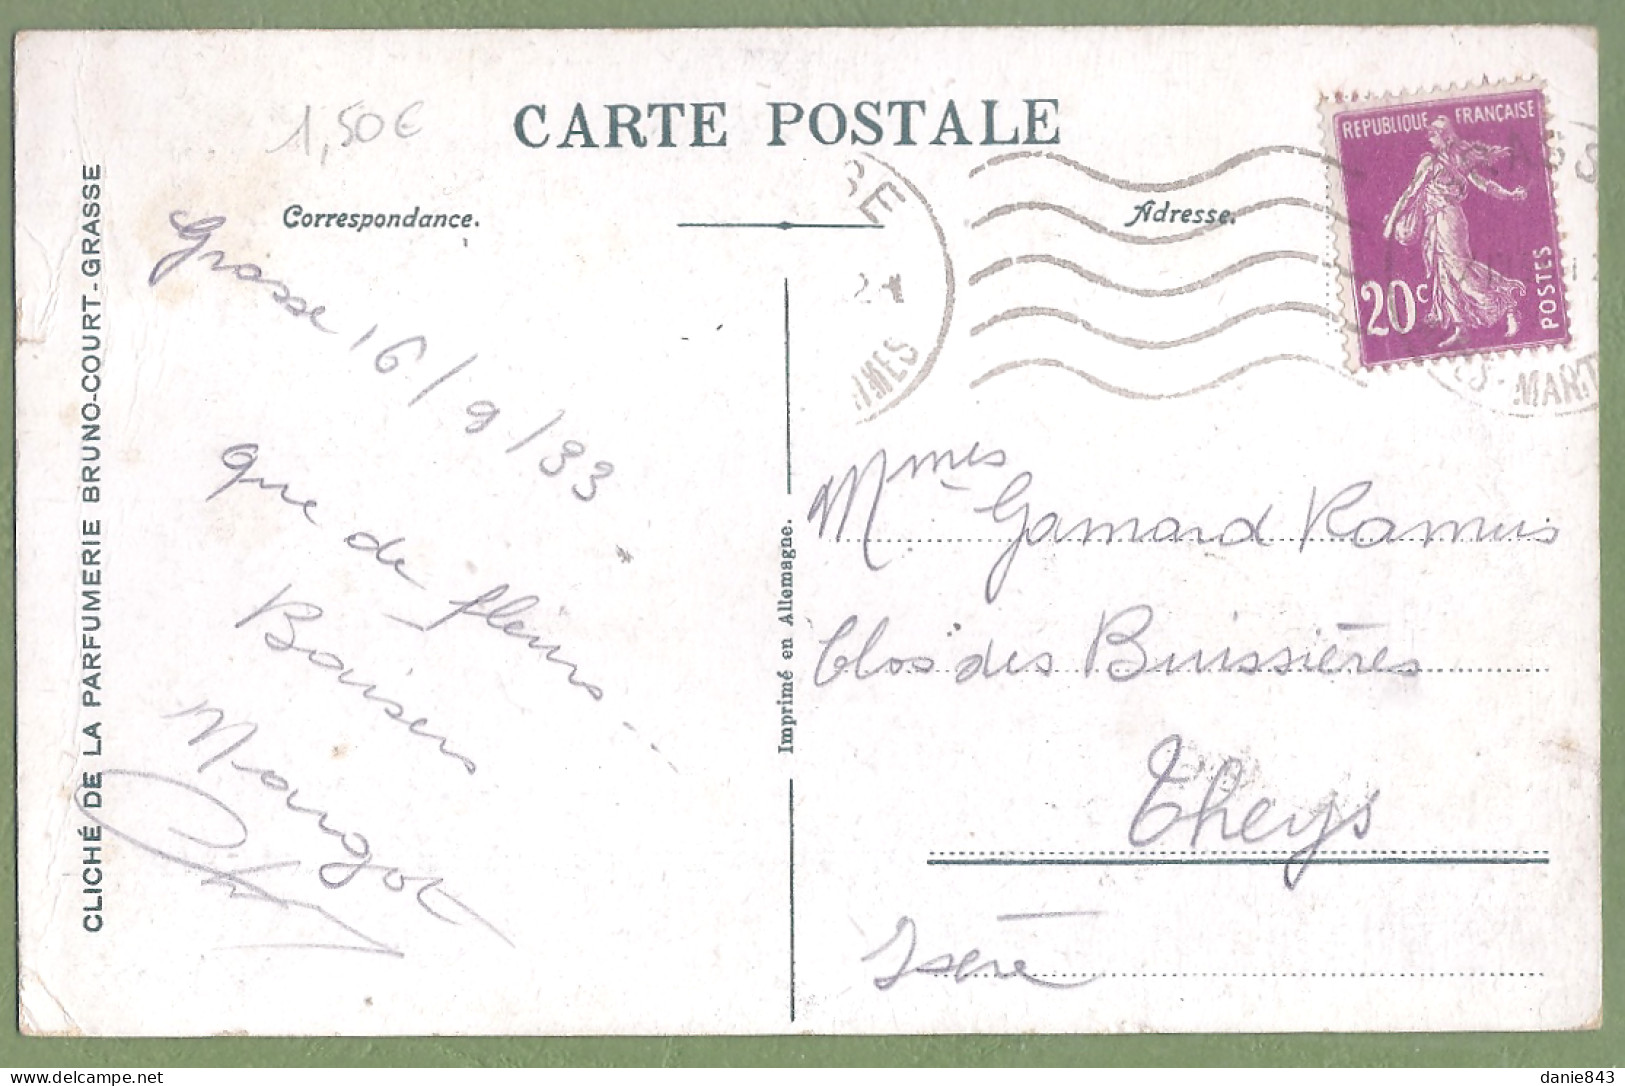 CARTE POSTALE
1,50€
Correspondance.
Adresse.
REPUBLIQUE FRANÇAISE
20c
POSTES
MART
CLICHÉ DE LA PARFUMERIE BRUNO-COURT-GRASSE
Grasse 16/9/33
que de fleurs...
Baisers
Margot
Imprimé en Allemagne.
Mmes Gamard Ramus
Clos des Buissières
Theys
Isère
danie843